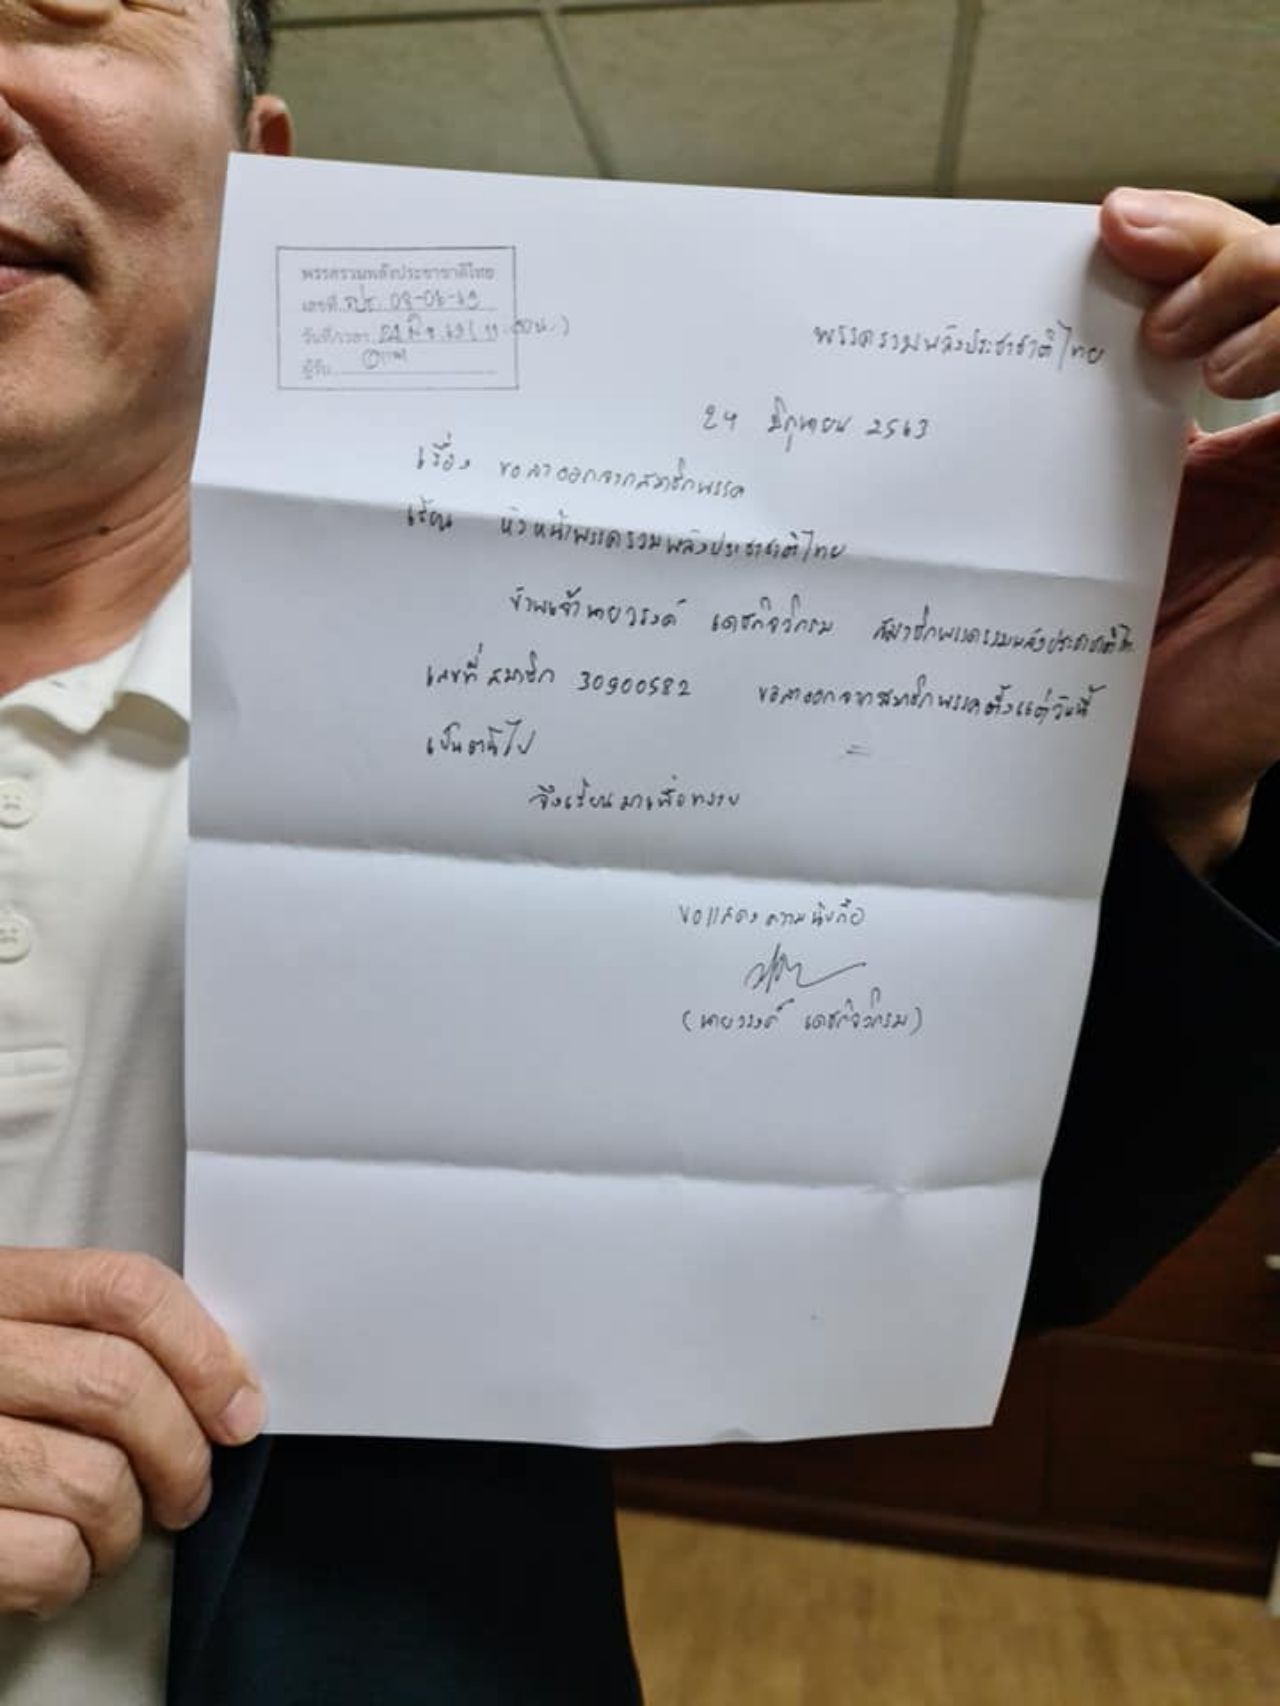 พรรครวมพลังประชาชาติไทย
เลขที่ รปช. 08-06-63
วันที่/เวลา 24 มิ.ย. 63 (11.00น.)
ผู้รับ
พรรครวมพลังประชาชาติไทย
24 มิถุนายน 2563
เรื่อง ขอลาออกจากสมาชิกพรรค
เรียน หัวหน้าพรรครวมพลังประชาชาติไทย
ข้าพเจ้านายวรงค์ เดชกิจวิกรม สมาชิกพรรครวมพลังประชาชาติไทย
เลขที่ สมาชิก 30900582 ขอลาออกจากสมาชิกพรรคตั้งแต่วันนี้
เป็นต้นไป
จึงเรียนมาเพื่อทราบ
ขอแสดงความนับถือ
(นายวรงค์ เดชกิจวิกรม)